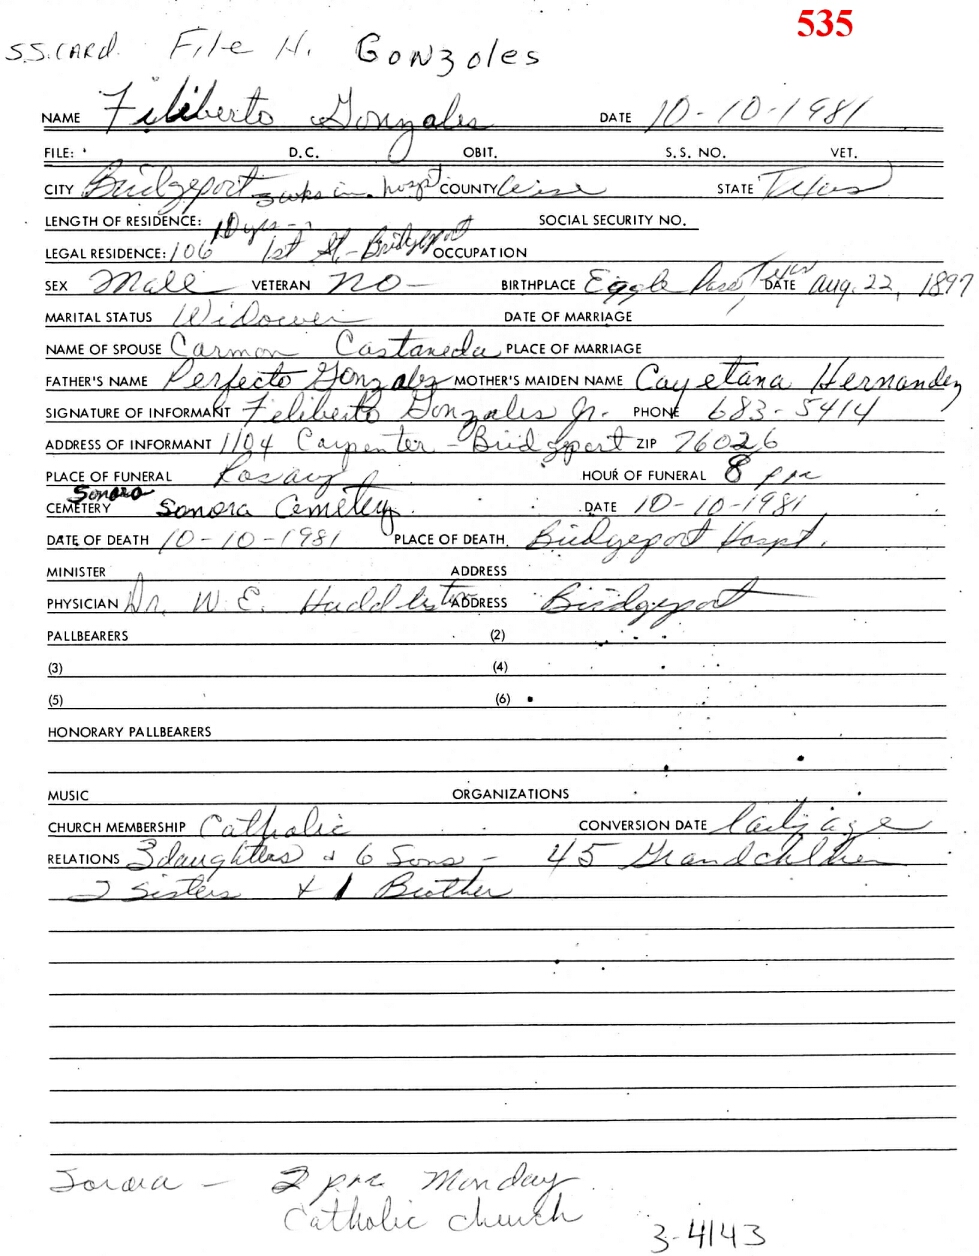 535
S.S. CARD. File H. Gonzoles
NAME Filiberto Gonzales DATE 10-10-1981
FILE: D.C. OBIT. S.S. NO. VET.
CITY Bridgeport 3 wks in hospt COUNTY Wise STATE Texas
LENGTH OF RESIDENCE: 10 yrs- SOCIAL SECURITY NO.
LEGAL RESIDENCE: 106 1st St-Bridgeport OCCUPATION
SEX Male VETERAN NO- BIRTHPLACE Eagle Pass, Texas DATE Aug. 22, 1897
MARITAL STATUS Widower DATE OF MARRIAGE
NAME OF SPOUSE Carmon Castaneda PLACE OF MARRIAGE
FATHER'S NAME Perfecto Gonzalez MOTHER'S MAIDEN NAME Cayetana Hernandez
SIGNATURE OF INFORMANT Filiberto Gonzales Jr. PHONE 683-5414
ADDRESS OF INFORMANT 1104 Carpenter - Bridgeport ZIP 76026
PLACE OF FUNERAL Rosary HOUR OF FUNERAL 8 pm
Sonora
CEMETERY Sonora Cemetery DATE 10-10-1981
DATE OF DEATH 10-10-1981 PLACE OF DEATH. Bridgeport Hospt.
MINISTER ADDRESS
PHYSICIAN Dr. W. E. Huddleston ADDRESS Bridgeport
PALLBEARERS (2)
(3) (4)
(5) (6)
HONORARY PALLBEARERS
MUSIC ORGANIZATIONS
CHURCH MEMBERSHIP Catholic CONVERSION DATE Early age
RELATIONS 3 daughters & 6 Sons - 45 Grandchildren
2 Sisters & 1 Brother
Sonora - 2 pm Monday
Catholic church
3-4143